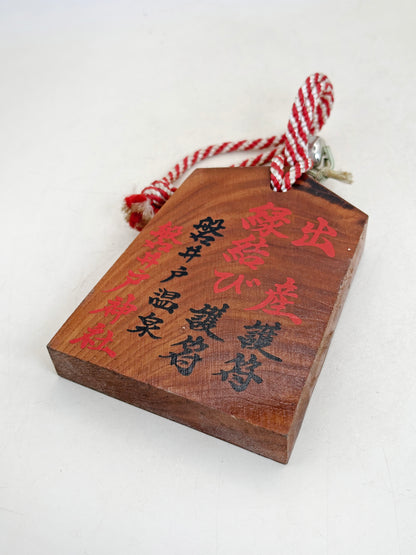 出産護符
縁結び護符
磐井戸温泉
磐井戸神社